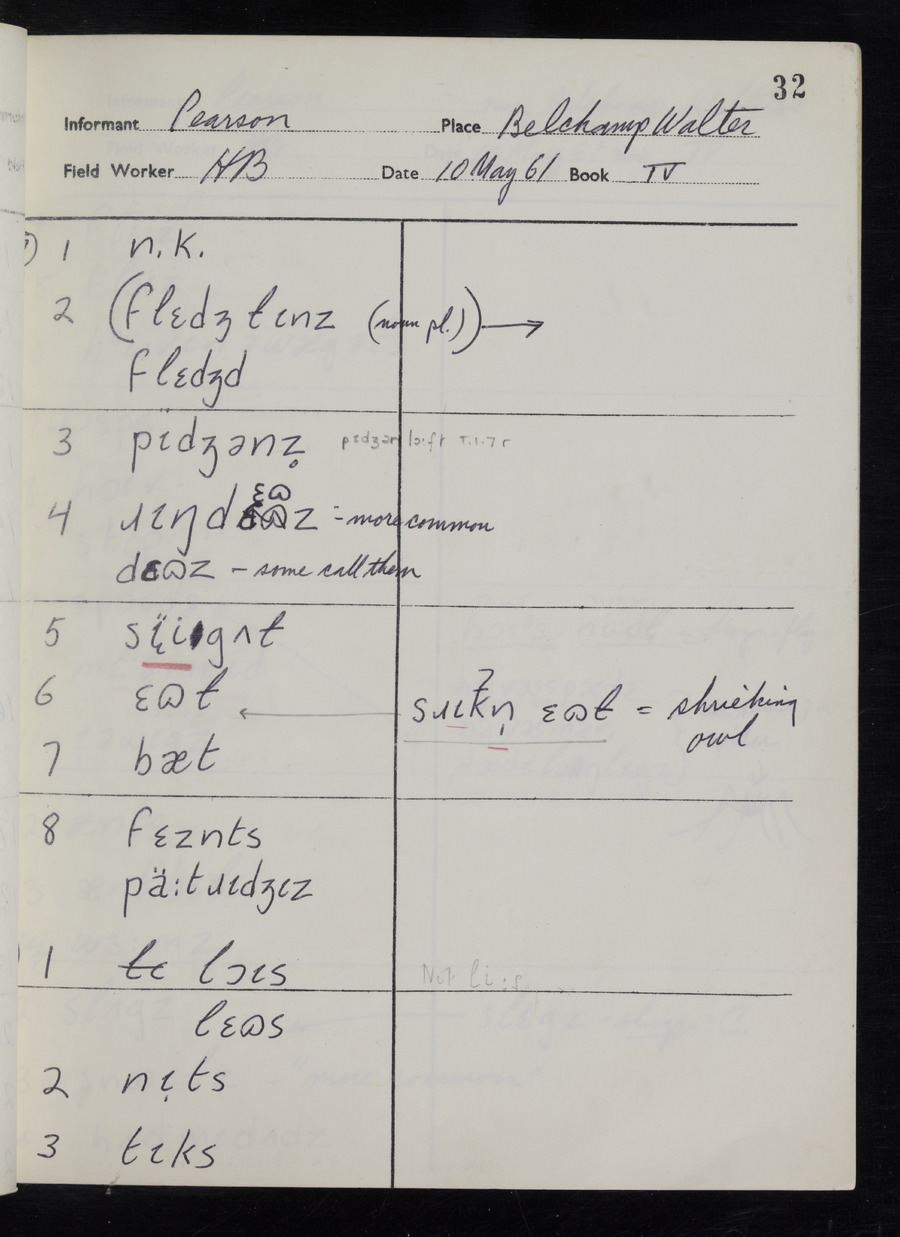 32
Informant Pearson Place Belchamp Walter
Field Worker HB Date 10 May 61 Book IV
1 n.k.
2 (flɛdʒ ƚɩnz (noun pl.)) →
flɛdʒd
3 pɩdʒənz̥ pɩdʒən lɔ:ft T.1.7 r
4 ɹɩŋdɛɷz - more common
dɛɷz - some call them
5 sɩ̣̈igʌƚ
6 ɛɷƚ ← sɹɩʔkn̩ ɛɷƚ = shrieking owl
7 bæt
8 fɛznts
pä:tɹɩdʒɩz
1 lɔɩs
lɛɷs
2 nɩ̣ts
3 tɩks